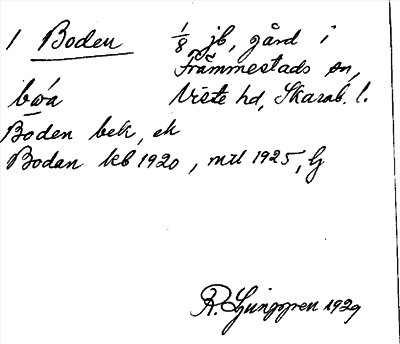 1 Boden 1/8 jb, gård i
Främmestads sn,
Viste hd, Skarab. l.
Boden bek, ek
Bodan kb 1920, mtl 1925, lj
R. Ljunggren 1929